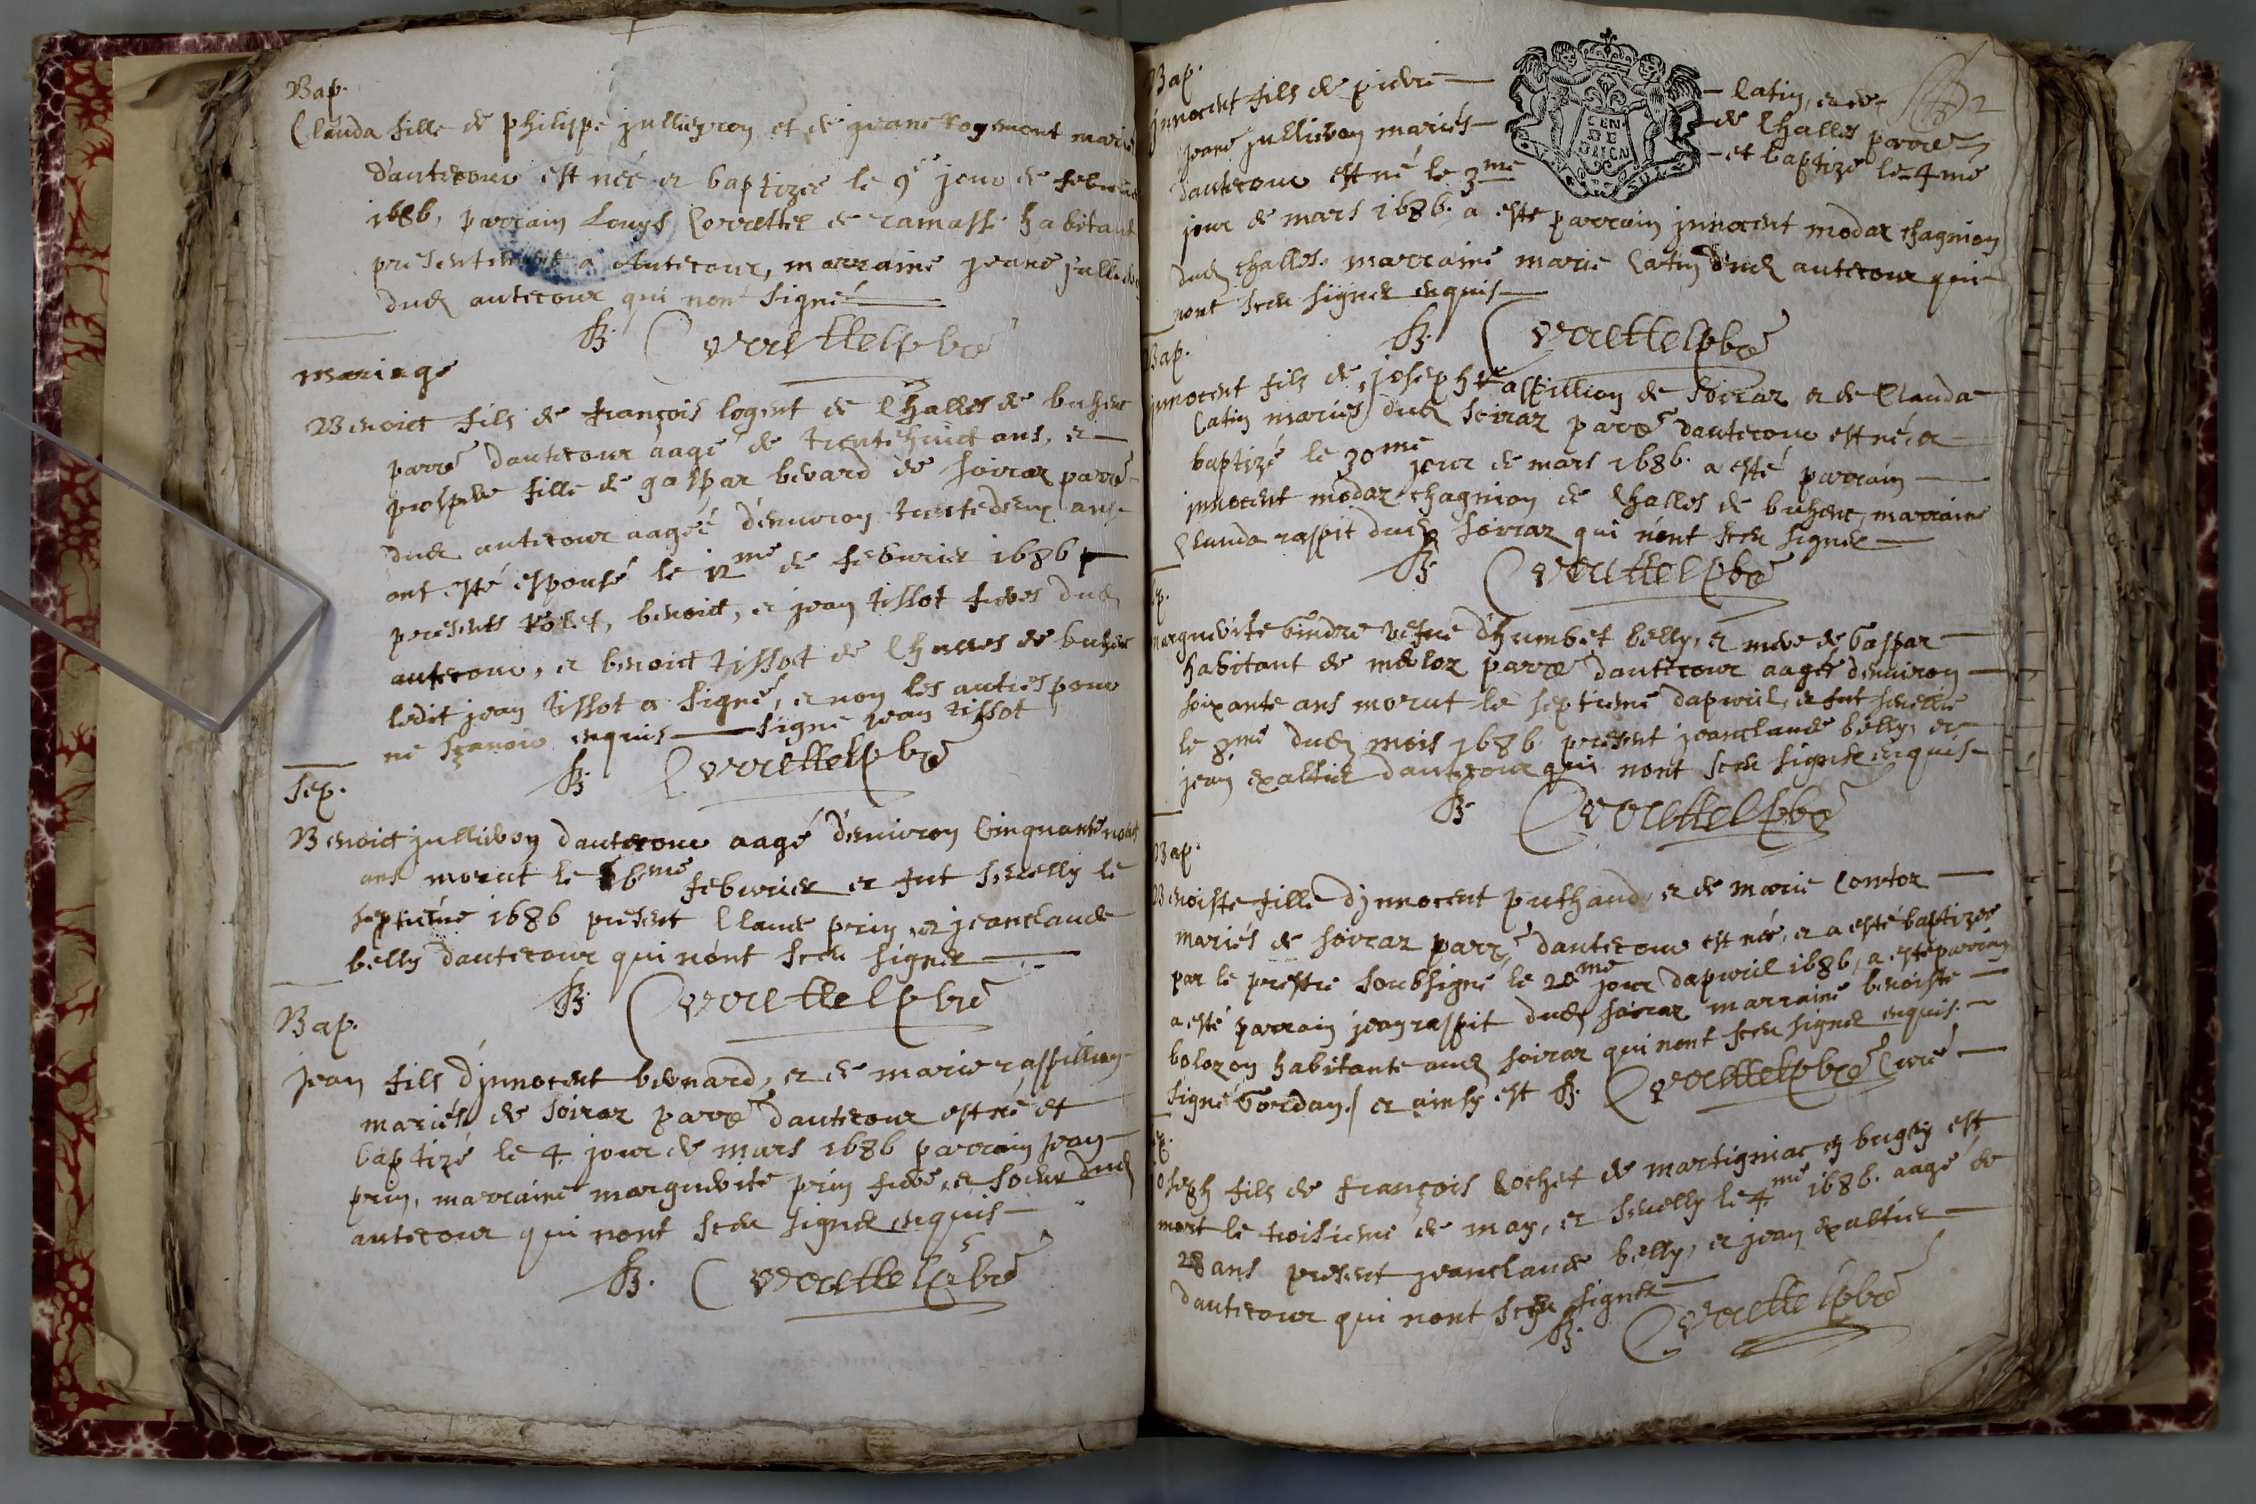 Bap.
Clauda fille de philippe jullieron et de jeane rogemont mariés
dautecour est néé et baptizéé le 9e jour de febvrier
1686, parrain Louys Correttel de ramasse habitant
presentement a Autecour, marraine jeane jullie
dud autecour qui nont signé
B. Correttel pbre
mariage
Benoict fils de françois logent de Challes de buhenc
parre dautecour aagé de trentehuict ans, et
prospere fille de gaspar berard de soiraz parre
dud autecour aagéé denviron trentedeux ans
ont esté espousé le 12me de febvrier 1686
presents benoict, et jean tissot freres dud
autecour, et benoict tissot de Challes de buhenc
ledit jean tissot a signé, et non les autres pour
ne sçavoir enquis signé jean tissot
B. Correttel pbre
Sep.
Benoict jullieron dautecour aagé denviron Cinquante
ans morut le 6me febvrier et fut sevelly le
septieme 1686 present Claude prin, et jeanclaude
belly dautecour qui nont sceu signer
B. Correttel pbre
Bap.
jean fils djnnocent bernard, et de marie raspillion
mariés de soiraz parre dautecour est né et
baptizé le 4 jour de mars 1686 parrain jean
prin, marraine marguerite prin frere, et soeur dud
autecour qui nont sceu signer enquis
B. Correttel pbre
Bap.
jnnocent fils de pierre Catin, et de
jeane jullieron mariés de Challes parre
dautecour est né le 3me et baptizé le 4me
jour de mars 1686. a esté parrain jnnocent modaz chagnion
dud challes, marraine marie Catin dud autecour qui
nont sceu signer enquis
B. Correttel pbre
Bap.
jnnocent fils de joseph raspillion de soiraz et de Clauda
Catin mariés dud soiraz parre dautecour est né, et
baptizé le 30me jour de mars 1686. a esté parrain
jnnocent modaz chagnion de Challes de buhenc, marraine
Clauda raspit dud soiraz qui nont sceu signer
B. Correttel pbre
marguerite gindre vefue dhumbet belly, et mere de gaspar
habitant de parre dautecour aagéé denviron
soixante ans morut le septieme dapvril, et fut sevellie
le 8me dud mois 1686 present jeanclaude belly, et
jean exaltier dautecour qui nont sceu signer enquis
B. Correttel pbre
Bap.
Benoiste fille djnnocent puthaud, et de marie Comtoz
mariés de soiraz parre dautecour est néé, et a esté baptizéé
par le prestre soubsigné le 20me jour dapvril 1686, a esté parrain
a esté parrain jean raspit dud soiraz marraine benoiste
bolozon habitante aud soiraz qui nont sceu signer enquis.
signé gordan / et ainsy est B. Correttel pbre Curé
joseph fils de françois Cochet de martigniac en bugey est
mort le troisieme de may, et sevelly le 4me 1686. aagé de
28 ans present jeanclaude belly, et jean exaltier
dautecour qui nont sceu signer
B. Correttel pbre